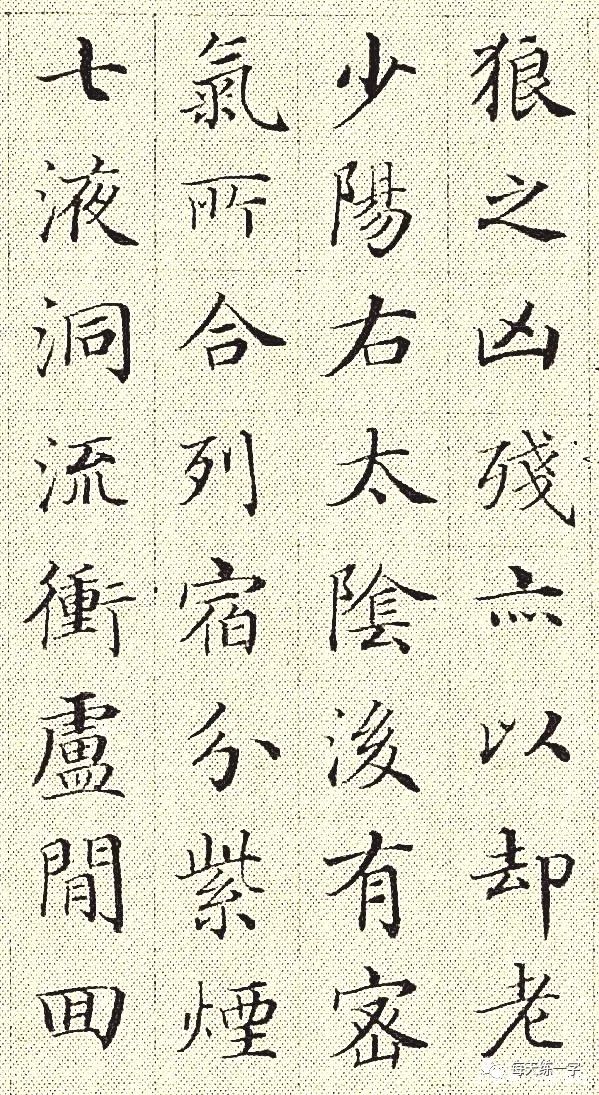 狼之凶殘亦以却老
少陽右太陰後有密
氣所合列宿分紫煙
七液洞流衝盧閒回
每天练一字